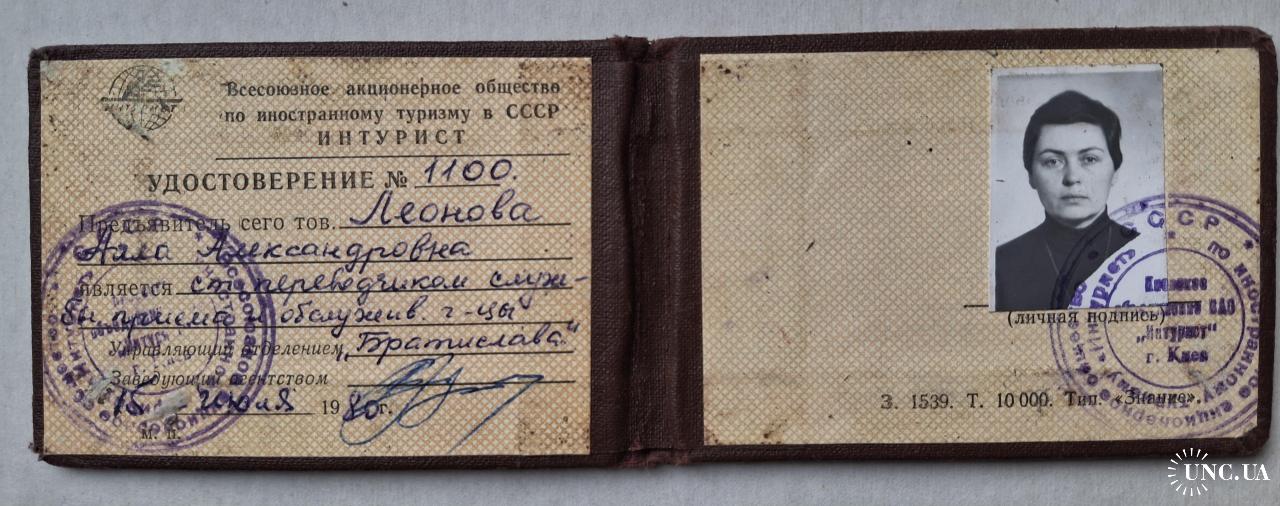 Всесоюзное акционерное общество
по иностранному туризму в СССР
ИНТУРИСТ
УДОСТОВЕРЕНИЕ № 1100.
Предъявитель сего тов. Леонова
Алла Александровна
является ст. переводчиком служ-
бы приема и обслужив. г-цы
Управляющий отделением „Братислава"
Заведующий агентством
15 июля 1980 г.
м. п.
(личная подпись)
СССР
„Интурист"
г. Киев
З. 1539. Т. 10 000. Тип. «Знание».
UNC.UA